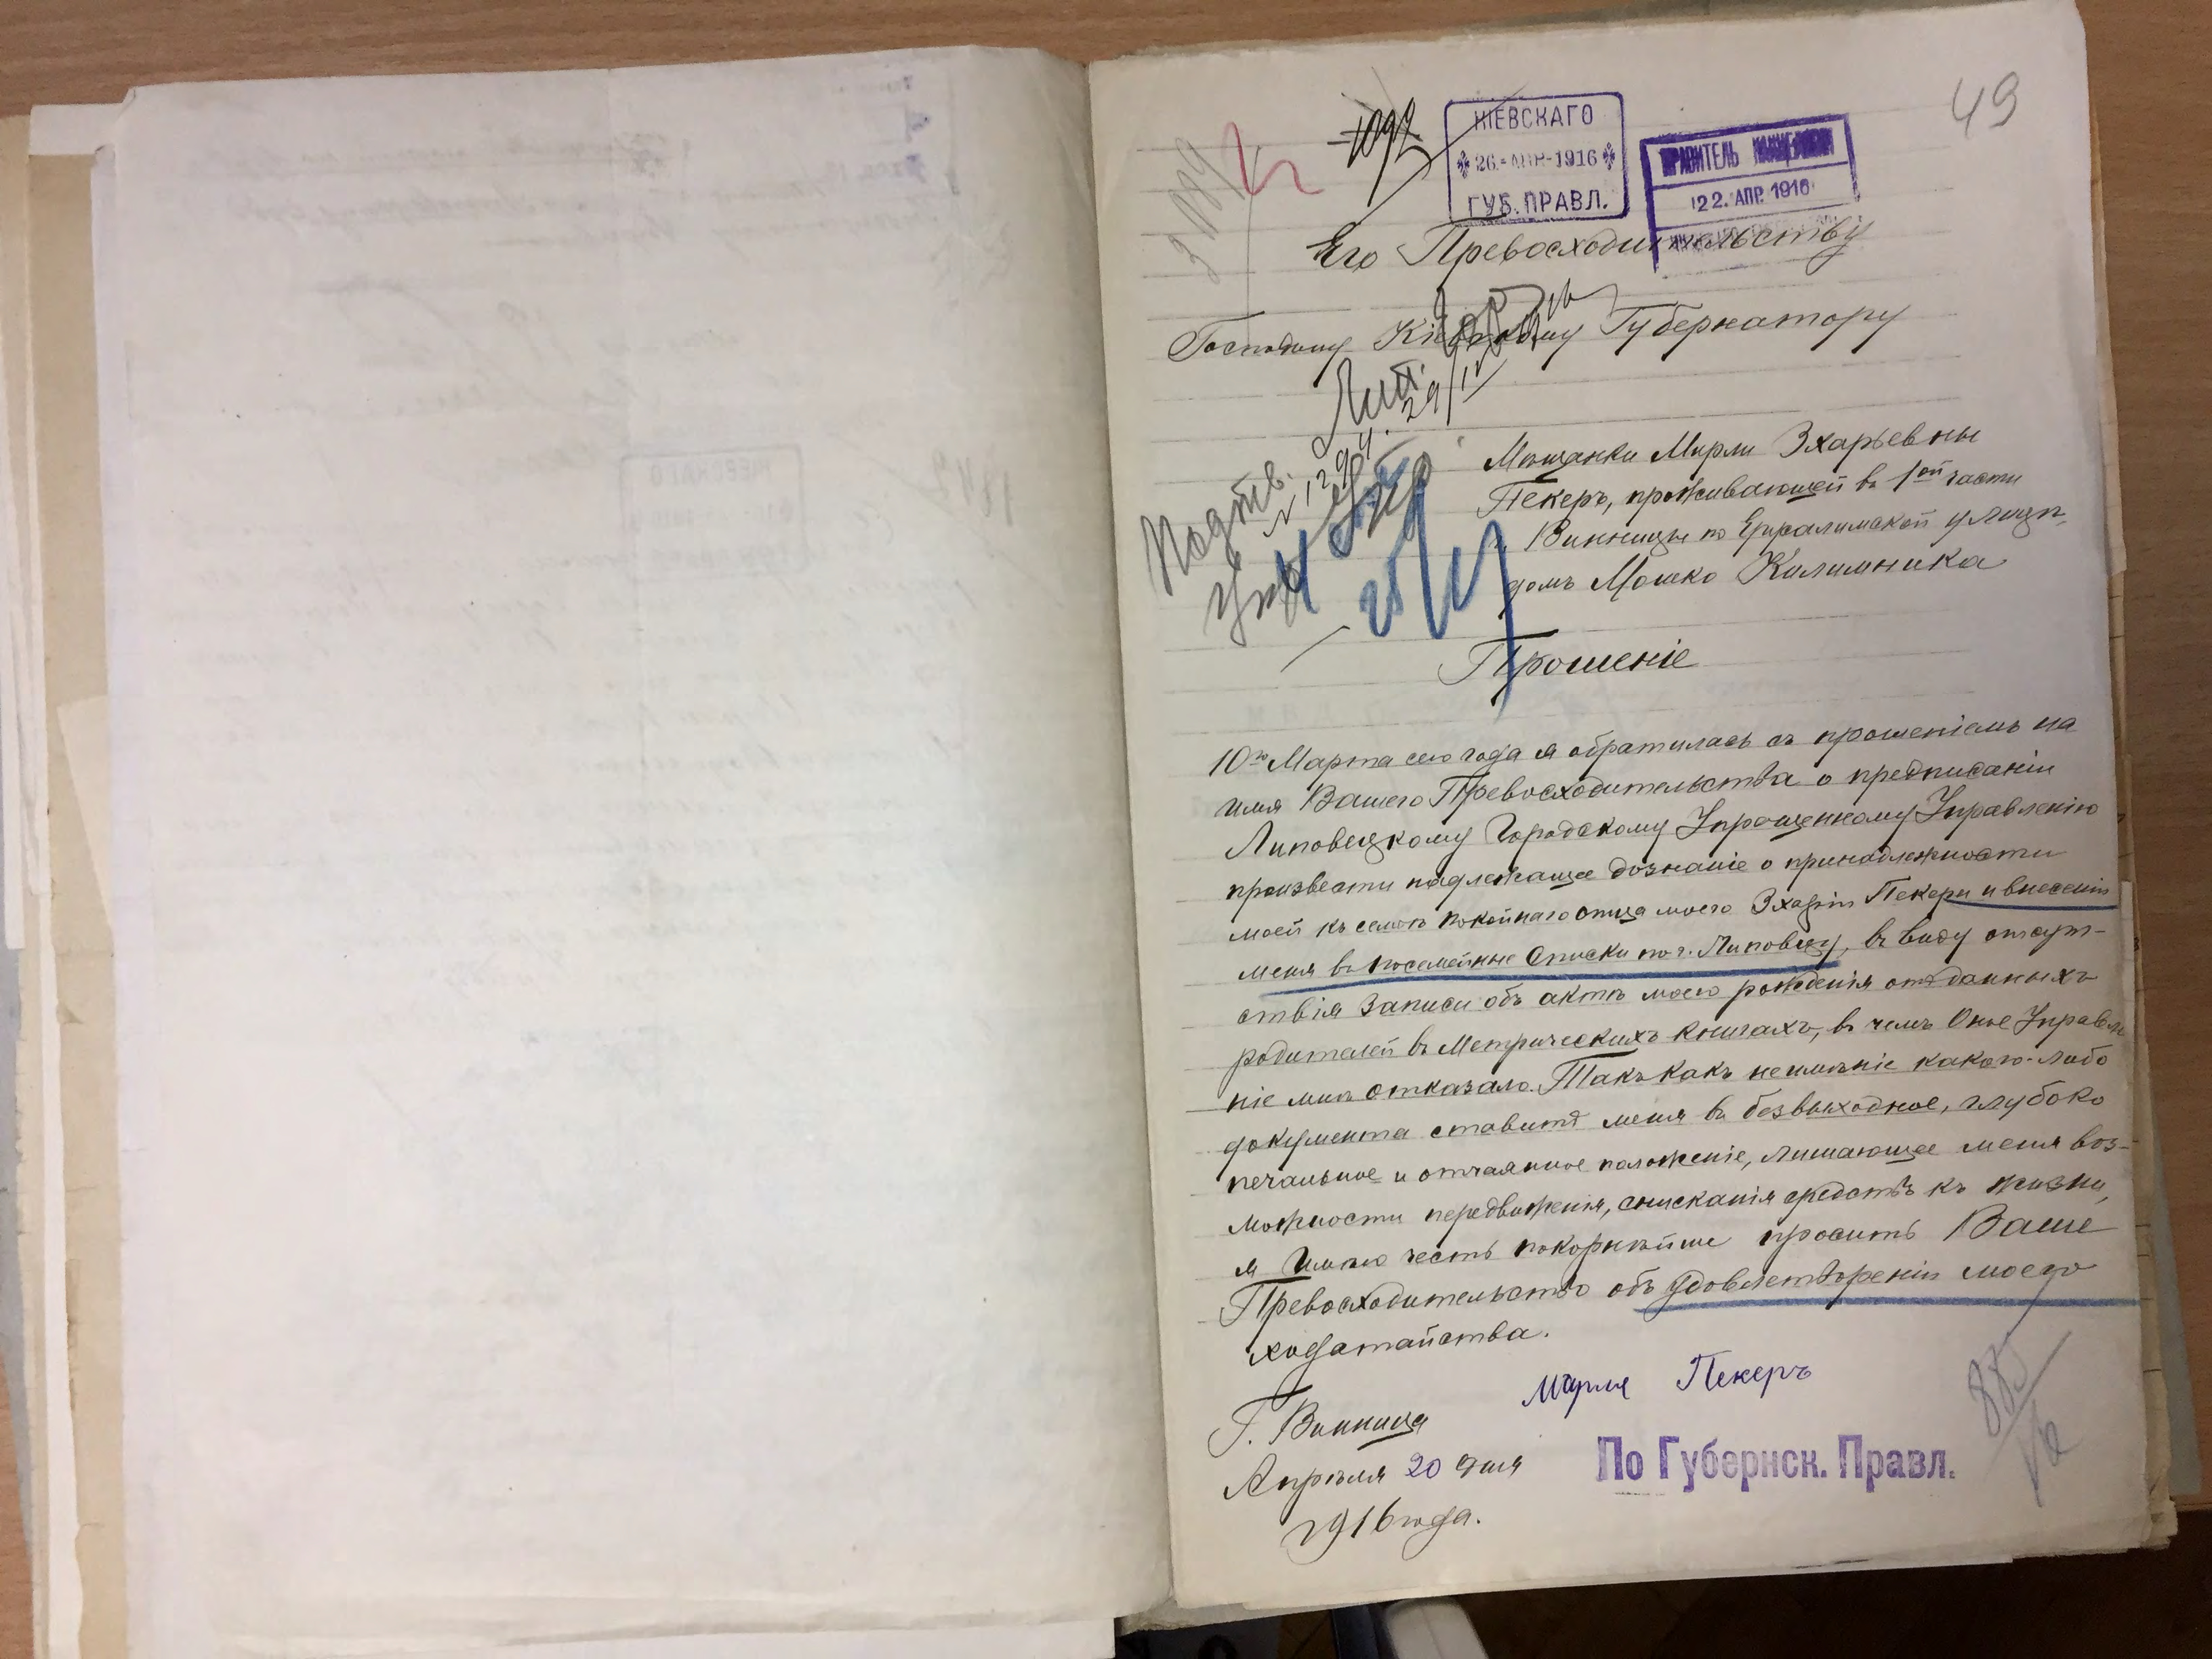 49
1092
КІЕВСКАГО
26-АПР-1916
ГУБ. ПРАВЛ.
ПРАВИТЕЛЬ КАНЦЕЛЯРІИ
22. АПР. 1916
Его Превосходительству
Господину Кіевскому Губернатору
Подтв.
Лип.
29/IV
Мѣщанки Мирли Зхарьевны
Пекеръ, проживающей въ 1ой части
г. Винницы по Ерусалимской улицѣ,
домъ Мошко Килимника
Прошеніе
10го Марта сего года я обратилась съ прошеніемъ на
имя Вашего Превосходительства о предписаніи
Липовецкому Городскому Упрощенному Управленію
произвести надлежащее дознаніе о принадлежности
моей къ семьѣ покойнаго отца моего Зхаріи Пекеръ и внесеніи
меня въ посемейные списки по г. Липовцу, въ виду отсут-
ствія записи объ актѣ моего рожденія отъ данныхъ
родителей въ Метрическихъ книгахъ, въ чемъ Оное Управле
ніе мнѣ отказало. Такъ какъ неимѣніе какого-либо
документа ставитъ меня въ безвыходное, глубоко
печальное и отчаянное положеніе, лишающее меня воз-
можности передвиженія, сниканія средствъ къ жизни,
я имѣю честь покорнѣйше просить Ваше
Превосходительство объ удовлетвореніи моего
ходатайства.
Мирля Пекеръ
Г. Винница
Апрѣля 20 дня
1916 года.
По Губернск. Правл.